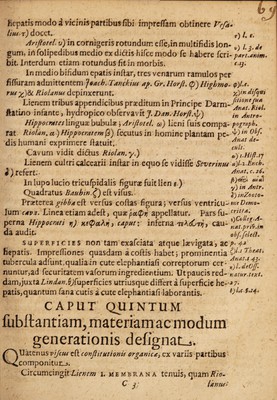 hepatis modo à vicinis partibus sibi impressam obtinere Vesa-
lius τ) docet.
Aristotel. υ) in cornigeris rotundum esse, in multifidis lon-
gum, in solipedibus medio ex dictis hisce modo se habere scri-
bit. Interdum etiam rotundus fit in morbis.
In medio bifidum epatis instar, tres venarum ramulos per
fissuram admittentem Joach. Tanckius ap. Gr. Horst. φ) Highmo-
rus χ) & Riolanus depinxerunt.
Lienem tribus appendicibus præditum in Principe Darm-
statino infante, hydropico observavit J. Dan. Horst. ψ)
Hippocrates lingua bubulæ; Aristotel. ω) lieni suis compa-
rat Riolan. α) Hippocratem β) secutus in homine plantam pe-
dis humani exprimere statuit.
Cavum vidit dictus Riolan. γ.)
Lienem cultri calcearii instar in equo se vidisse Severinus
δ) refert.
In lupo lucio tricuspidalis figuræ fuit lien ε)
Quadratus Bauhin. ζ) est visus.
Præterea gibba est versus costas figura; versus ventricu-
lum cava. Linea etiam adest, quæ ῥαφὴ appellatur. Pars su-
perna Hippocrati η) κεφαλὴ, caput; inferna τελευτὴ, cau-
da audit.
SUPERFICIES non tam exasciata atque lævigata, ac
hepatis. Impressiones quasdam à costis habet; prominentia
tubercula adsunt, qualia in cute elephantiasi correptorum cer-
nuntur, ad securitatem vasorum ingredientium. Ut paucis red-
dam, juxta Linden. θ) superficies utriusque differt à superficie he-
patis, quantum sana cutis à cute elephantiasi laborantis.
CAPUT QUINTUM
substantiam, materiam ac modum
generationis designat.
Quatenus viscus est constitutionis organicæ, ex variis partibus
componitur.
Circumcingit Lienem I. MEMBRANA tenuis, quam Rio-
C 3 lanus